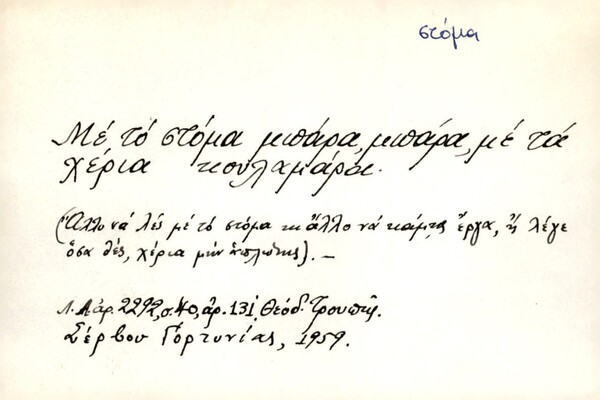 στόμα
Μέ τό στόμα μπάρα, μπάρα, μέ τά
χέρια κουλαμάρα.
(Ἄλλο νά λές μέ τό στόμα κι ἄλλο νά κάμῃς ἔργα, ἤ λέγε
ὅσα θές, χέρια μήν ἁπλώνῃς). —
Λ. Λάρ. 2292, σ. 40, ἀρ. 131, Θεόδ. Τρουπῆς.
Σέρβου Γορτυνίας, 1959.